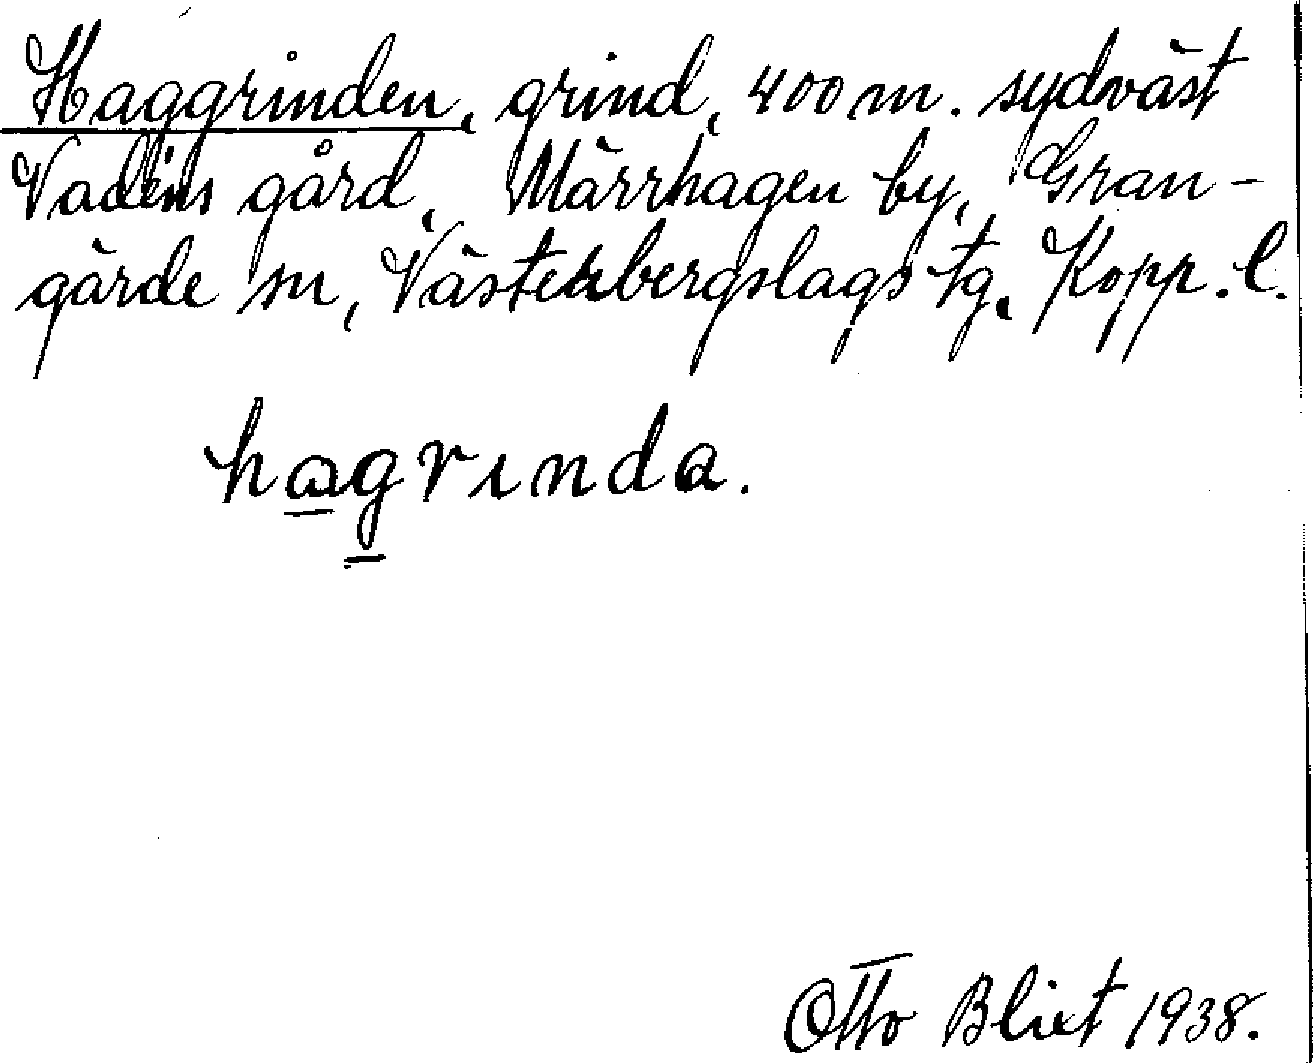 Haggrinden, grind, 400 m. sydväst
Vadéns gård, Märrhagen by, Gran-
gärde sn, Västerbergslags tg. Kopp. l.
hagrinda.
Otto Blixt 1938.